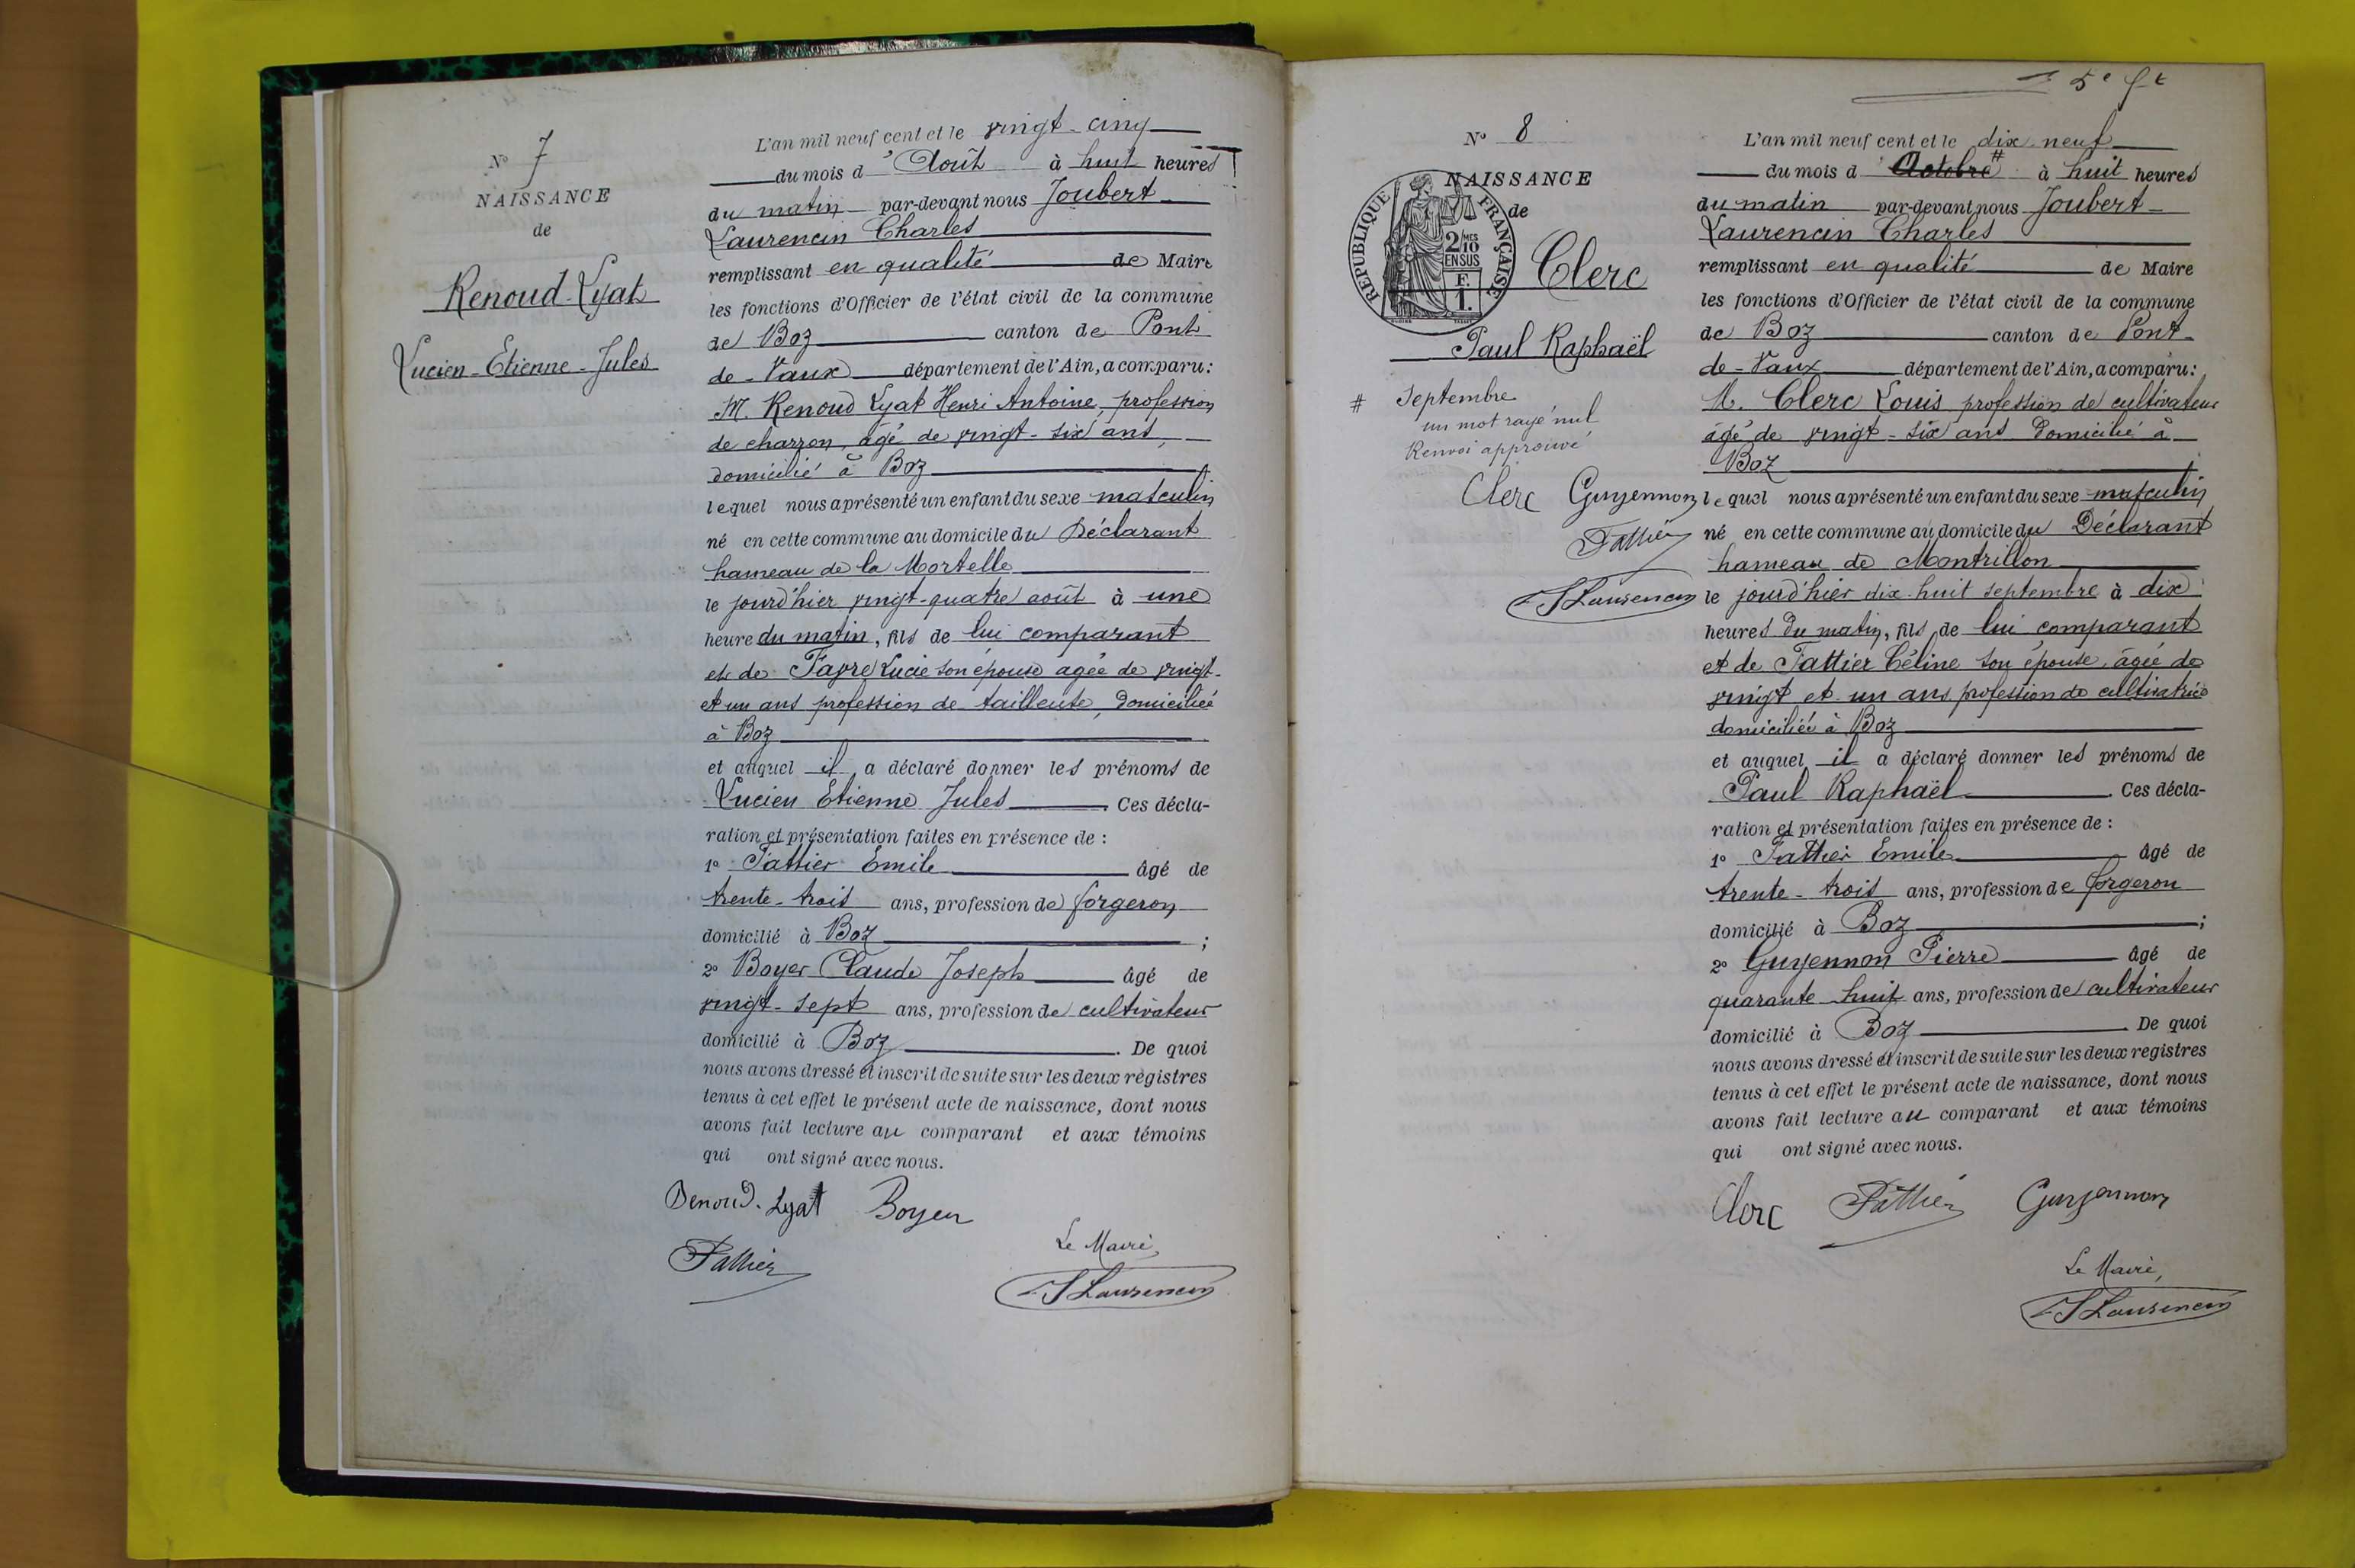 N° 7
NAISSANCE
de
Renoud-Lyat
Lucien-Etienne-Jules
L'an mil neuf cent et le vingt-cinq
du mois d'Août à huit heures
du matin par-devant nous Joubert
Laurencin Charles
remplissant en qualité de Maire
les fonctions d'Officier de l'état civil de la commune
de Boz canton de Pont
de-Vaux département de l'Ain, a comparu :
M. Renoud Lyat Henri Antoine, profession
de charron, âgé de vingt-six ans,
domicilié à Boz
lequel nous a présenté un enfant du sexe masculin
né en cette commune au domicile du Déclarant
hameau de la Mortelle
le jourd'hier vingt-quatre août à une
heure du matin, fils de lui comparant
et de Favre Lucie son épouse agée de vingt-
et un ans profession de tailleuse, Domiciliée
à Boz
et auquel il a déclaré donner les prénoms de
Lucien Etienne Jules. Ces décla-
ration et présentation faites en présence de :
1° Fattier Emile âgé de
trente-trois ans, profession de forgeron
domicilié à Boz ;
2° Boyer Claude Joseph âgé de
vingt-sept ans, profession de cultivateur
domicilié à Boz. De quoi
nous avons dressé et inscrit de suite sur les deux registres
tenus à cet effet le présent acte de naissance, dont nous
avons fait lecture au comparant et aux témoins
qui ont signé avec nous.
Renoud-Lyat Boyer
Fattier
Le Maire,
J Laurencin
5e ft
N° 8
NAISSANCE
de
RÉPUBLIQUE FRANÇAISE
2/10 MES
EN SUS
F.
1.
Clerc
Paul Raphaël
# Septembre
un mot rayé nul
Renvoi approuvé
Clerc Guyennon
Fattier
J Laurencin
L'an mil neuf cent et le dix neuf
du mois d'Octobre # à huit heures
du matin par-devant nous Joubert-
Laurencin Charles
remplissant en qualité de Maire
les fonctions d'Officier de l'état civil de la commune
de Boz canton de Pont-
de-Vaux département de l'Ain, a comparu :
M. Clerc Louis profession de cultivateur
âgé de vingt-six ans Domicilié à
Boz
lequel nous a présenté un enfant du sexe masculin
né en cette commune au domicile du Déclarant
hameau de Montrillon
le jourd'hier dix-huit septembre à dix
heures du matin, fils de lui comparant
et de Fattier Céline son épouse, âgée de
vingt et un ans profession de cultivatrice
domiciliée à Boz
et auquel il a déclaré donner les prénoms de
Paul Raphaël. Ces décla-
ration et présentation faites en présence de :
1° Fattier Emile âgé de
trente-trois ans, profession de forgeron
domicilié à Boz ;
2° Guyennon Pierre âgé de
quarante huit ans, profession de cultivateur
domicilié à Boz. De quoi
nous avons dressé et inscrit de suite sur les deux registres
tenus à cet effet le présent acte de naissance, dont nous
avons fait lecture au comparant et aux témoins
qui ont signé avec nous.
Clerc Fattier Guyennon
Le Maire,
J Laurencin